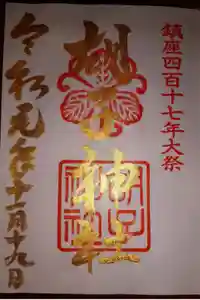 鎮座四百十七年大祭
胡子神社
令和元年十一月十九日